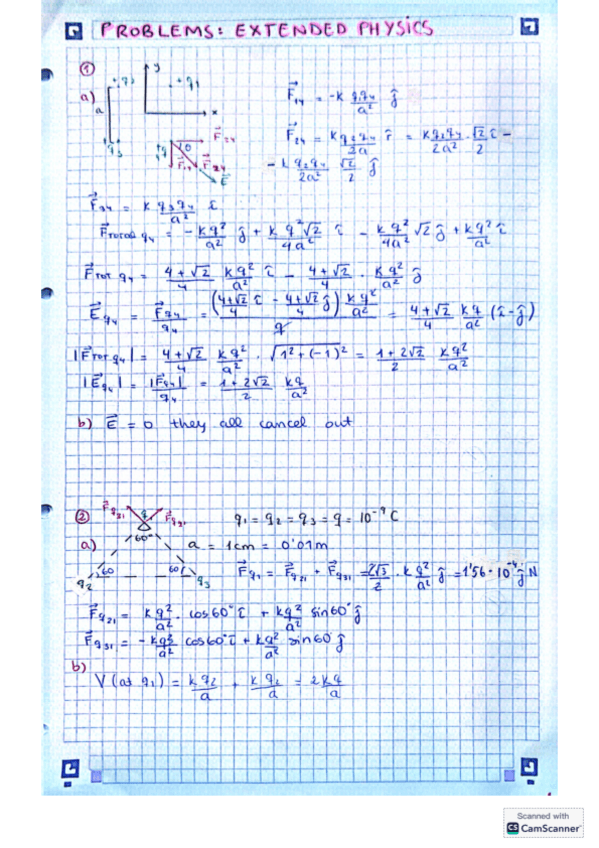 PROBLEMS: EXTENDED PHYSICS
①
a)
y
x
a
q3
F⃗14 = -k q1q4/a² ĵ
F⃗24 = k q2q4/2a r̂ = k q2q4/2a² · √2/2 î -
- k q2q4/2a² √2/2 ĵ
F⃗34 = k q3q4/a² î
F⃗total q4 = -kq²/a² ĵ + k q²√2/4a² î - kq²/4a² √2 ĵ + kq²/a² î
F⃗TOT q4 = 4+√2/4 kq²/a² î - 4+√2/4 · kq²/a² ĵ
E⃗q4 = F⃗q4/q4 = (4+√2/4 î - 4+√2/4 ĵ) kq²/a² / q = 4+√2/4 kq/a² (î-ĵ)
|F⃗TOT q4| = 4+√2/4 kq²/a² · √1²+(-1)² = 1+2√2/2 kq²/a²
|E⃗q4| = |F⃗q4|/q4 = 1+2√2/2 kq/a²
b) E⃗ = 0 they all cancel out
②
F⃗q21 q1 F⃗q31
q1 = q2 = q3 = q = 10⁻⁹ C
a)
60°
a = 1cm = 0'01m
60 60°
q2 q3
F⃗q1 = F⃗q21 + F⃗q31 = 2√3/2 · k q²/a² ĵ = 1'56 · 10⁻⁴ ĵ N
F⃗q21 = kq²/a² · cos60° î + kq²/a² sin60° ĵ
F⃗q31 = -kq²/a² cos60° î + kq²/a² sin60° ĵ
b)
V(at q1) = k q2/a + k q2/a = 2kq/a
Scanned with
CS CamScanner